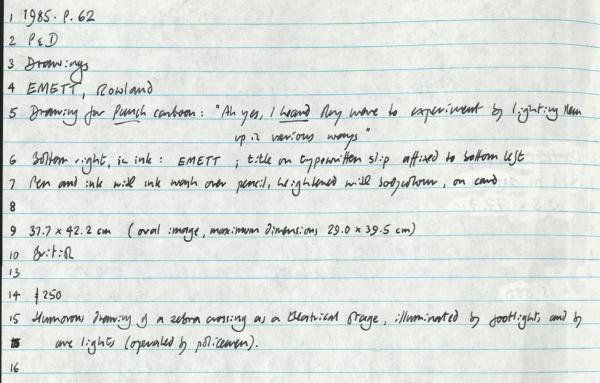 1 1985. P. 62
2 P & D
3 Drawings
4 EMETT, Rowland
5 Drawing for Punch cartoon: "Ah yes, I heard they were to experiment by lighting them
up in various ways"
6 Bottom right, in ink: EMETT; title on typewritten slip affixed to bottom left
7 Pen and ink with ink wash over pencil, heightened with bodycolour, on card
8
9 37.7 x 42.2 cm (oval image, maximum dimensions 29.0 x 39.5 cm)
10 British
13
14 £250
15 Humorous drawing of a zebra crossing as a theatrical stage, illuminated by footlights and by
arc lights (operated by policemen).
16